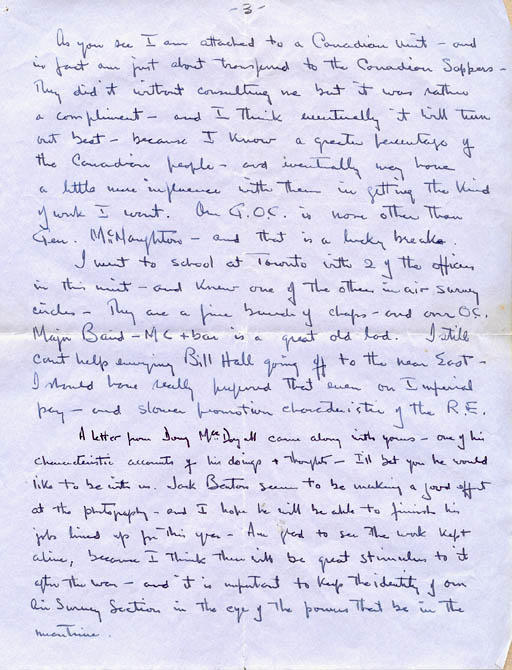 - 3 -
As you see I am attached to a Canadian Unit - and
in fact am just about transferred to the Canadian Sappers -
They did it without consulting me but it was rather
a compliment - and I think eventually it will turn
out best - because I know a greater percentage of
the Canadian people - and eventually may have
a little more influence with them in getting the kind
of work I want. Our G.O.C. is none other than
Gen. McNaughton - and that is a lucky break.
I went to school at Toronto with 2 of the officers
in this unit - and knew one of the others in air survey
circles - They are a fine bunch of chaps - and our O.C.
Major Baird - MC + bar is a great old lad. I still
can't help envying Bill Hall going off to the near East -
I should have really preferred that even on Imperial
pay - and slower promotion characteristic of the R.E.
A letter from Doug MacDougall came along with yours - one of his
characteristic accounts of his doings + thoughts - I'll bet you he would
like to be with us. Jack Benton seems to be making a good effort
at the photography - and I hope he will be able to finish his
jobs lined up for this year - Am glad to see the work kept
alive, because I think there will be great stimulus to it
after the war - and it is important to keep the identity of our
Air Survey Section in the eye of the powers that be in the
meantime.